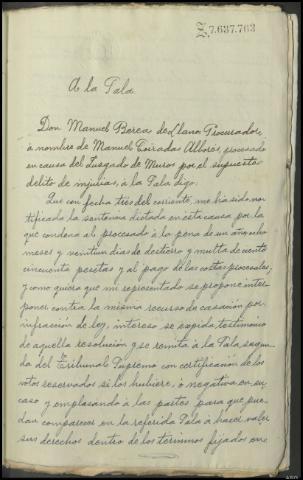 Z.7.637.763
A la Sala
Don Manuel Berea de Llano Procurador
a nombre de Manuel Toirados Albores, procesado
en causa del Juzgado de Muros por el supuesto
delito de injurias, á la Sala digo:
Que con fecha tres del corriente, me ha sido no-
tificada la sentencia dictada en esta causa por la
que condena al procesado á la pena de un año, ocho
meses y veintiun dias de destierro y multa de ciento
cincuenta pesetas y al pago de las costas procesales,
y como quiera que mi representado se propone inter-
poner contra la misma recurso de casación por
infracción de ley, intereso se expida testimonio
de aquella resolución y se remita á la Sala segun-
da del Tribunal Supremo con certificación de los
votos reservados si los hubiere, ó negativa en su
caso y emplazando á las partes para que pue-
dan comparecer en la referida Sala á hacer valer
sus derechos dentro de los términos fijados en